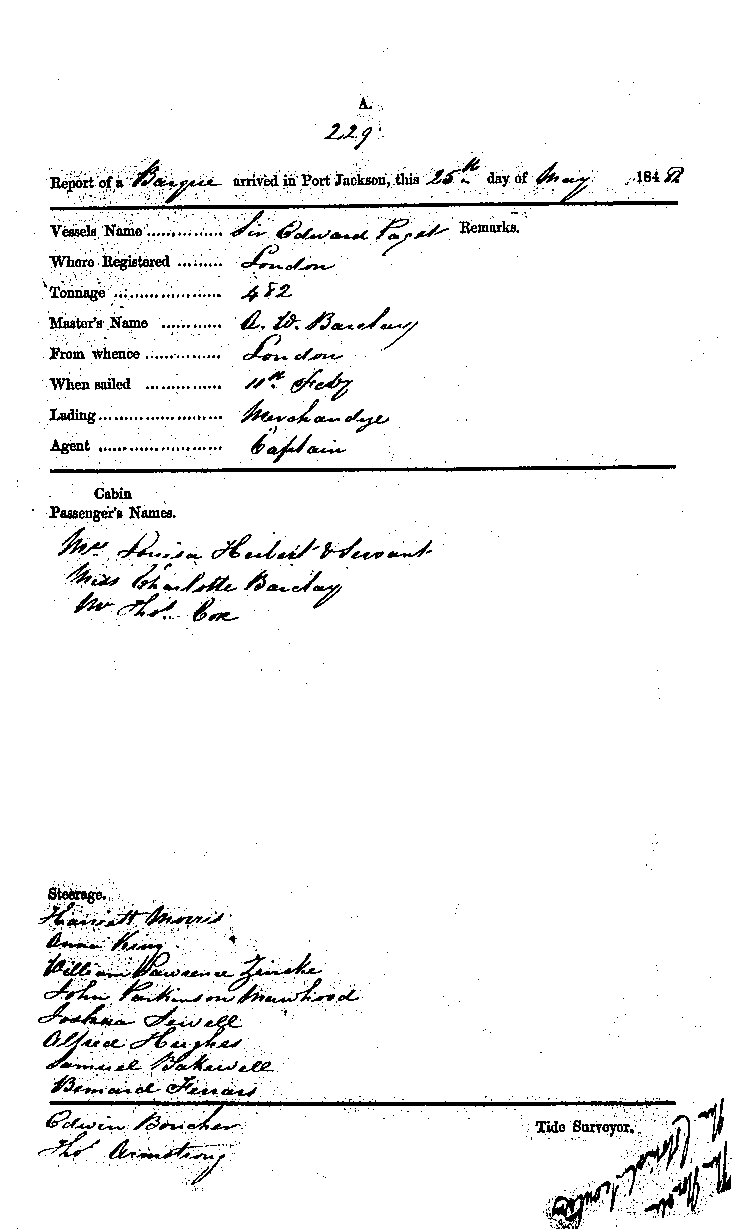 A.
229
Report of a Barque arrived in Port Jackson, this 25th day of May 1842
Vessels Name .............. Sir Edward Paget Remarks.
Where Registered ......... London
Tonnage ..................... 482
Master's Name ............ A. W. Barclay
From whence ............... London
When sailed ............... 11th Feby
Lading........................ Merchandize
Agent ........................ Captain
Cabin
Passenger's Names.
Mrs Louisa Herbert & Servant
Miss Charlotte Barclay
Mr Thos Cox
Steerage.
Harriett Morris
Anna King
William Lawrence Zincke
John Parkinson Mawhood
Joshua Sewell
Alfred Hughes
Samuel Bakewell
Bernard Ferrars
Edwin Boucher
Thos Armstrong
Tide Surveyor.